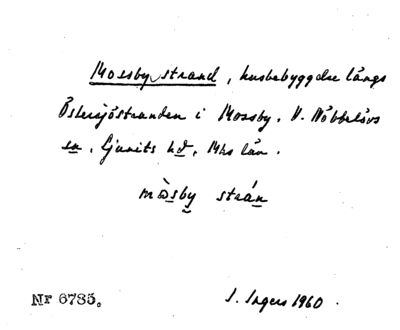 Mossby strand, husbebyggelse längs
Östersjöstranden i Mossby, V. Nöbbelövs
sn, Ljunits hd, Mhs län.
mὼsby strán
Nr 6785.
I. Ingers 1960.